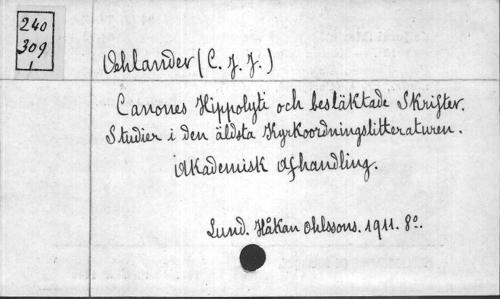 240
309
1
Oehlander (C. J. J.)
Canones Hippolyti och besläktade Skrifter.
Studier i den äldsta Kyrkoordningslitteraturen.
Akademisk Afhandling.
Lund. Håkan Ohlssons. 1911. 8o.